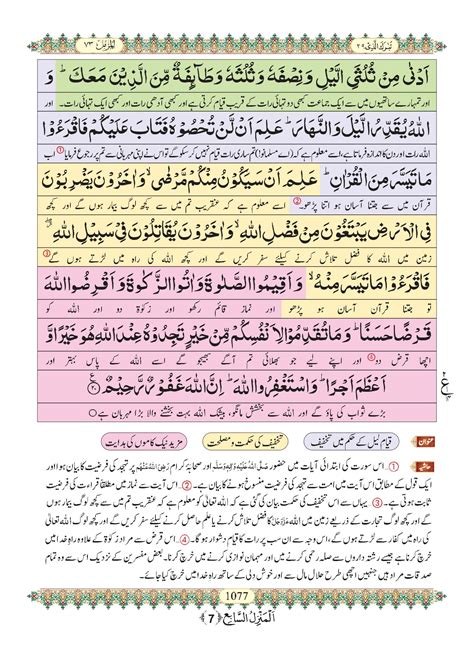 تبرک الذی ۲۹
المزمل ۷۳
اَدْنٰى مِنْ ثُلُثَیِ الَّیْلِ وَ نِصْفَهٗ وَ ثُلُثَهٗ وَ طَآىٕفَةٌ مِّنَ الَّذِیْنَ مَعَكَؕ وَ
اور تمہارے ساتھیوں میں سے ایک جماعت کبھی دو تہائی رات کے قریب قیام کرتی ہے اور کبھی آدھی رات اور کبھی ایک تہائی رات۔ اور
اللّٰهُ یُقَدِّرُ الَّیْلَ وَ النَّهَارَؕ عَلِمَ اَنْ لَّنْ تُحْصُوْهُ فَتَابَ عَلَیْكُمْ فَاقْرَءُوْا
اللہ رات اور دن کا اندازہ فرماتا ہے، اسے معلوم ہے کہ (اے مسلمانو!) تم ساری رات قیام نہیں کرسکو گے تو اس نے اپنی مہربانی سے تم پر رجوع فرمایا ① اب
مَا تَیَسَّرَ مِنَ الْقُرْاٰنِؕ عَلِمَ اَنْ سَیَكُوْنُ مِنْكُمْ مَّرْضٰىۙ وَ اٰخَرُوْنَ یَضْرِبُوْنَ
قرآن میں سے جتنا آسان ہو اتنا پڑھو۔ ② اسے معلوم ہے کہ عنقریب تم میں سے کچھ لوگ بیمار ہوں گے اور کچھ
فِی الْاَرْضِ یَبْتَغُوْنَ مِنْ فَضْلِ اللّٰهِۙ وَ اٰخَرُوْنَ یُقَاتِلُوْنَ فِیْ سَبِیْلِ اللّٰهِ
زمین میں اللہ کا فضل تلاش کرنے کیلئے سفر کریں گے اور کچھ اللہ کی راہ میں لڑتے ہوں گے ③
فَاقْرَءُوْا مَا تَیَسَّرَ مِنْهُۙ وَ اَقِیْمُوا الصَّلٰوةَ وَ اٰتُوا الزَّكٰوةَ وَ اَقْرِضُوا اللّٰهَ
تو جتنا قرآن آسان ہو پڑھو اور نماز قائم رکھو اور زکوٰۃ دو اور اللہ کو
قَرْضًا حَسَنًاؕ وَ مَا تُقَدِّمُوْا لِاَنْفُسِكُمْ مِّنْ خَیْرٍ تَجِدُوْهُ عِنْدَ اللّٰهِ هُوَ خَیْرًا وَّ
اچھا قرض دو ④ اور اپنے لیے جو بھلائی تم آگے بھیجو گے اسے اللہ کے پاس بہتر اور
اَعْظَمَ اَجْرًاؕ وَ اسْتَغْفِرُوا اللّٰهَؕ اِنَّ اللّٰهَ غَفُوْرٌ رَّحِیْمٌ ۲۰
بڑے ثواب کی پاؤ گے اور اللہ سے بخشش مانگو، بیشک اللہ بہت بخشنے والا بڑا مہربان ہے
ع
عنوان قیام لیل کے حکم میں تخفیف تخفیف کی حکمت و مصلحت مزید نیک کاموں کی ہدایت
حاشیہ ①۔ اس سورت کی ابتدائی آیات میں حضور صلی اللہ علیہ والہ وسلم اور صحابۂ کرام رضی اللہ عنہم پر تہجد کی فرضیت کا بیان ہوا اور
ایک قول کے مطابق اس آیت میں امت سے تہجد کی فرضیت منسوخ ہونے کا بیان ہے۔ ②۔ اس آیت سے نماز میں مطلقاً قراءت کی فرضیت
ثابت ہوتی ہے۔ ③۔ یہاں سے اس تخفیف کی حکمت بیان کی گئی ہے کہ اللہ تعالیٰ کو معلوم ہے کہ عنقریب تم میں سے کچھ لوگ بیمار
ہوں گے اور کچھ لوگ تجارت کے ذریعے زمین میں اللہ عزوجل کا فضل تلاش کرنے یا علم حاصل کرنے کیلئے سفر کریں گے اور کچھ لوگ اللہ تعالیٰ
کی راہ میں کفار سے لڑتے ہوں گے، اس وجہ سے ان سب پر رات کا قیام دشوار ہوگا۔ ④۔ اس قرض سے مراد زکوٰۃ کے علاوہ راہِ خدا میں
خرچ کرنا ہے جیسے رشتہ داروں سے صلہ رحمی کرنے میں اور مہمان نوازی کرنے میں خرچ کرنا۔ بعض مفسرین کے نزدیک اس سے وہ تمام
صدقات مراد ہیں جنہیں اچھی طرح حلال مال سے اور خوش دلی کے ساتھ راہِ خدا میں خرچ کیا جائے۔
1077
اَلْمَنْزِلُ السَّابِع ﴿7﴾